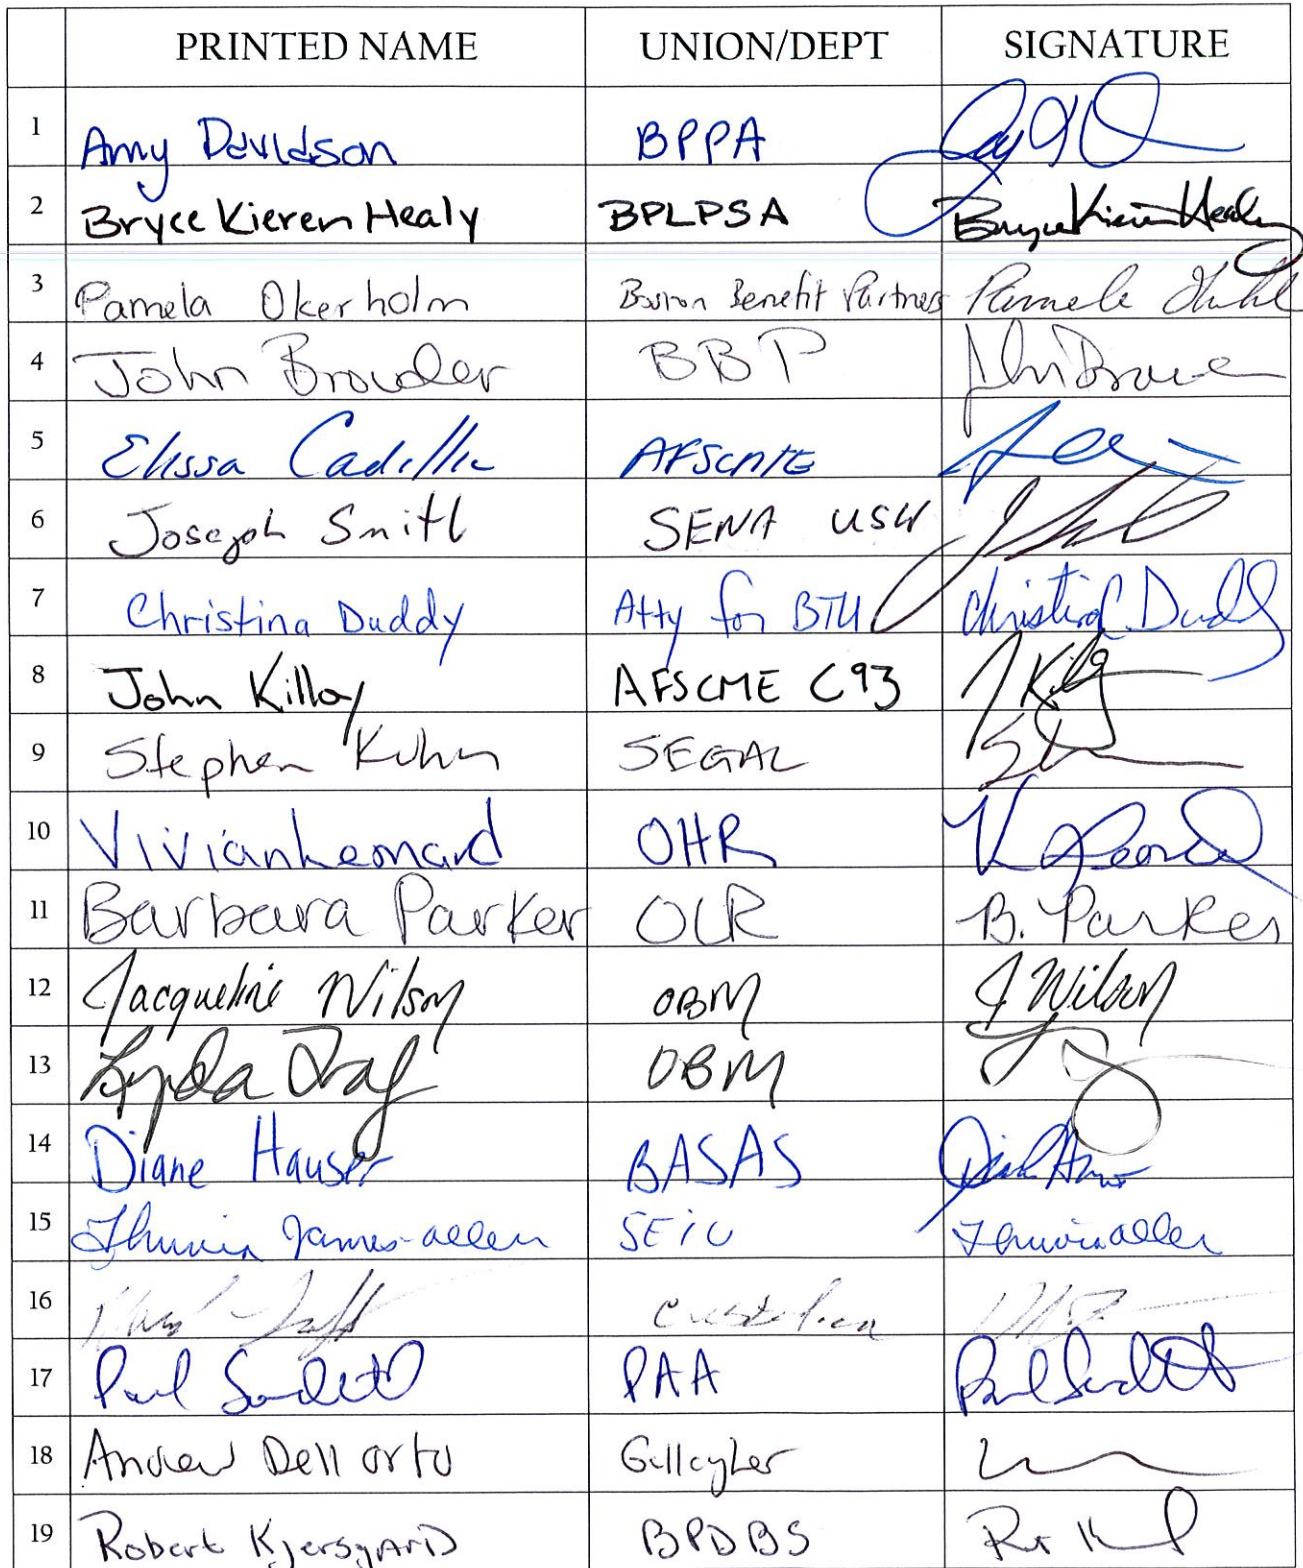 PRINTED NAME UNION/DEPT SIGNATURE
1 Amy Davidson BPPA
2 Bryce Kieren Healy BPLPSA Bryce Kieren Healy
3 Pamela Okerholm Boston Benefit Partners Pamela
4 John Browder BBP John
5 Elissa Cadillic AFSCME
6 Joseph Smith SENA USW
7 Christina Duddy Atty for BTU Christina Duddy
8 John Killoy AFSCME C93
9 Stephen Kuhn SEGAL
10 Vivian Leonard OHR
11 Barbara Parker OLR B. Parker
12 Jacqueline Wilson OBM J Wilson
13 Lynda OBM
14 Diane Hauser BASAS
15 James-allen SEIU
16 Custodian
17 Paul PAA Paul
18 Andrew Dell orto Gallagher
19 Robert Kjersgaard BPDBS